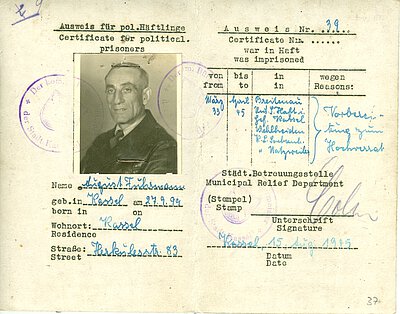 Ausweis für pol.Häftlinge
Certificate for political
prisoners
Name August Fuhrmann
geb.in Kassel am 27.9.94
born in on
Wohnort: Kassel
Residence
Straße: Herkulesstr. 83
Street
Ausweis Nr. 39
Certificate Nr.
war in Haft
was imprisoned
von bis in wegen
from to in Reasons:
März April Breitenau
33 45
Wehlheiden
" Natzweiler
Vorberei-
tung zum
Hochverrat
Städt.Betreuungsstelle
Municipal Relief Department
(Stempel)
Stamp
Unterschrift
Signature
Kassel 15. Aug. 1945
Datum
Date
37